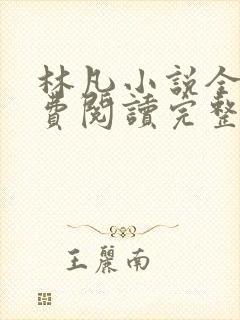 林凡小說全
費閱讀完整
王麗南